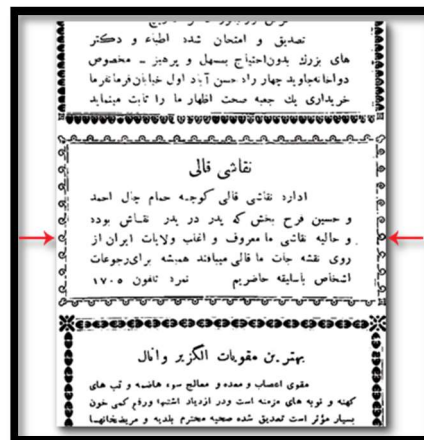 تصدیق و امتحان شده اطباء و دکتر
های بزرك بدون احتیاج بمسهل و پرهیز ـ مخصوص
دواخانه جاوید چهار راه حسن آباد اول خیابان فرمانفرما
خریداری یك جعبه صحت اظهار ما را ثابت مینماید
نقاشی قالی
اداره نقاشی قالی کوچه حمام چال احمد
و حسین فرح بخش که پدر در پدر نقاش بوده
و حالیه نقاشی ما معروف و اغلب ولایات ایران از
روی نقشه جات ما قالی میبافند همیشه برای رجوعات
اشخاص باسلیقه حاضریم نمره تلفون ۱۷۰۵
بهترین مقویات الگزیر وانال
مقوی اعصاب و معده و معالج سوء هاضمه و تب های
کهنه و نوبه های مزمنه است ودر ازدیاد اشتها ورفع کمی خون
بسیار مؤثر است تصدیق شده صحیه محترم بلدیه و مریضخانهـا